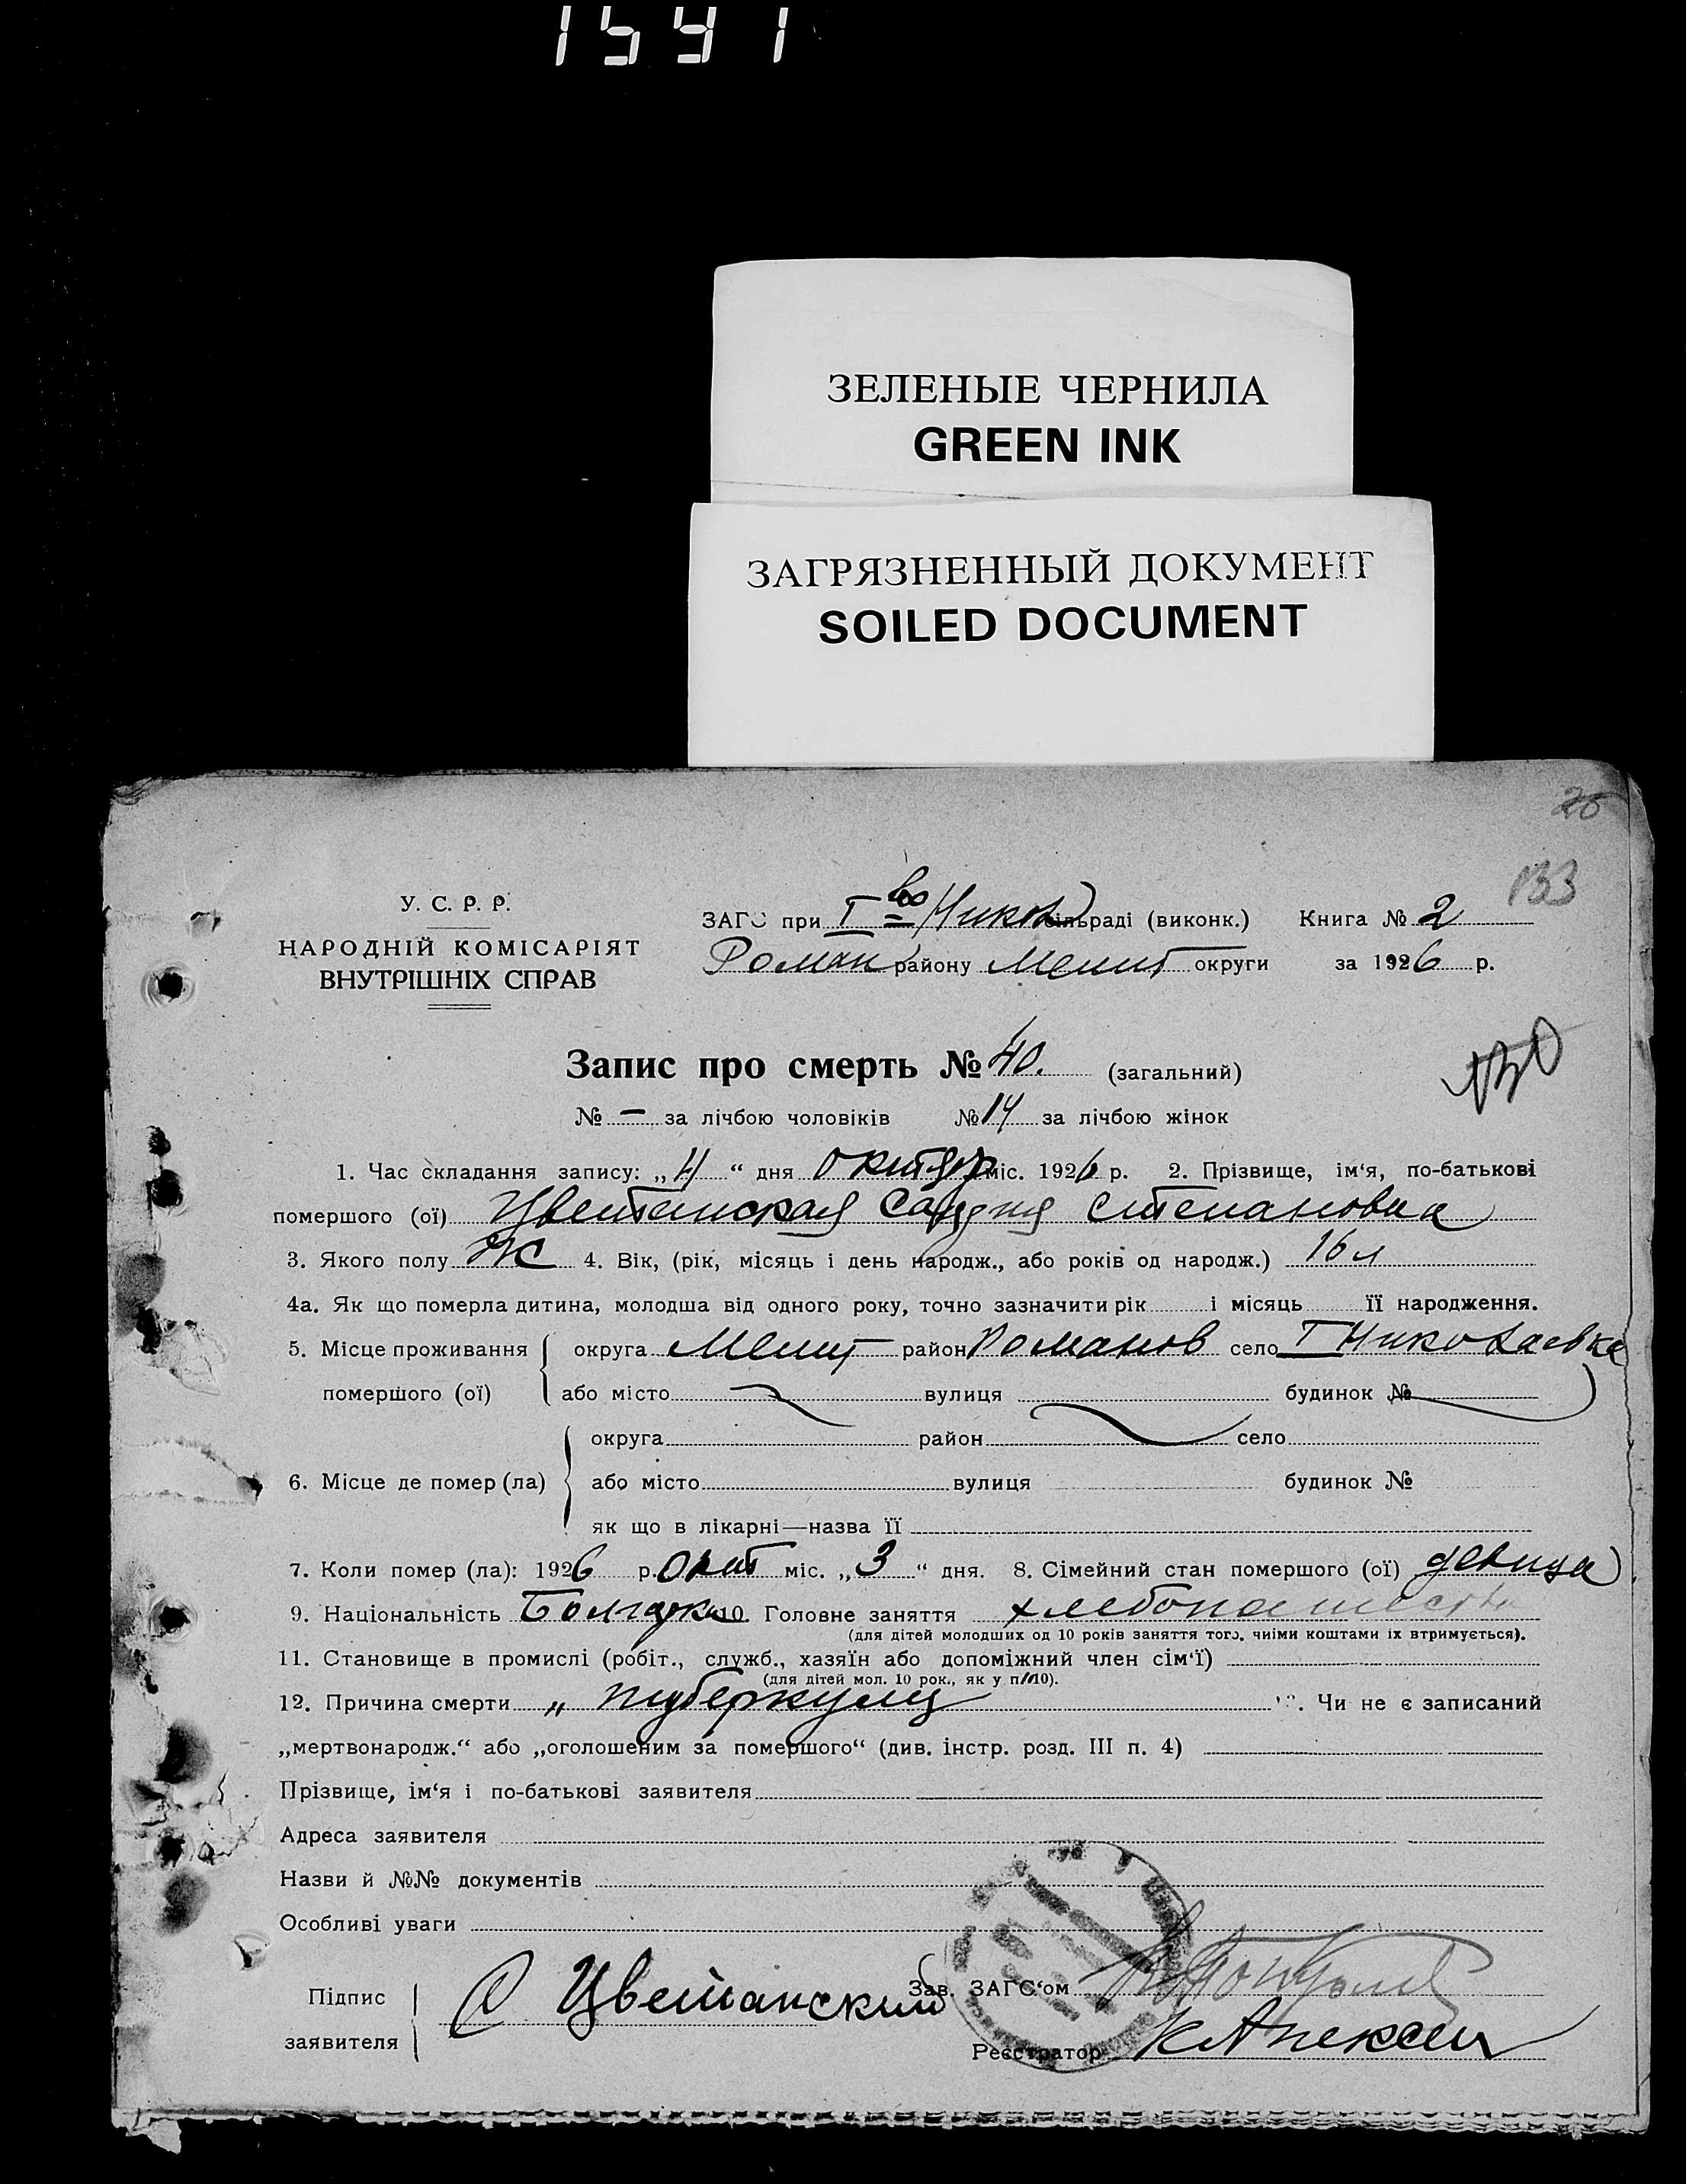 1541
ЗЕЛЕНЫЕ ЧЕРНИЛА
GREEN INK
ЗАГРЯЗНЕННЫЙ ДОКУМЕНТ
SOILED DOCUMENT
133
У. С. Р. Р.
НАРОДНІЙ КОМІСАРІЯТ
ВНУТРІШНІХ СПРАВ
ЗАГС при I во Никол сільраді (виконк.) Книга № 2
Роман району Мелит округи за 1926 р.
Запис про смерть № 40. (загальний)
130
№ — за лічбою чоловіків № 14 за лічбою жінок
1. Час складання запису: „4“ дня октяб міс. 1926 р. 2. Прізвище, ім‘я, по-батькові
помершого (ої) Цветанская Степановна
3. Якого полу Ж 4. Вік, (рік, місяць і день народж., або років од народж.) 16 л
4а. Як що померла дитина, молодша від одного року, точно зазначити рік і місяць її народження.
5. Місце проживання округа Мелит район Романов село I Николаевка
помершого (ої) або місто вулиця будинок №
округа район село
6. Місце де помер (ла) або місто вулиця будинок №
як що в лікарні—назва її
7. Коли помер (ла): 1926 р. Окт міс. „3“ дня. 8. Сімейний стан помершого (ої) девица
9. Національність Болгарка 10. Головне заняття хлебопашество
(для дітей молодших од 10 років заняття того, чиїми коштами їх втримується).
11. Становище в промислі (робіт., служб., хазяїн або допоміжний член сім‘ї)
(для дітей мол. 10 рок., як у п. 10).
12. Причина смерти „ туберкулез 13. Чи не є записаний
„мертвонародж.“ або „оголошеним за помершого“ (див. інстр. розд. III п. 4)
Прізвище, ім‘я і по-батькові заявителя
Адреса заявителя
Назви й №№ документів
Особливі уваги
Підпис С Цветанский Зав. ЗАГС‘ом
заявителя
Реєстратор К Алексеи